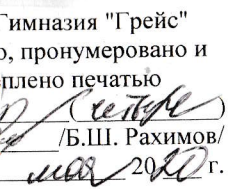 Гимназия "Грейс"
о, пронумеровано и
еплено печатью
(четыре)
/Б.Ш. Рахимов/
мая 2020 г.